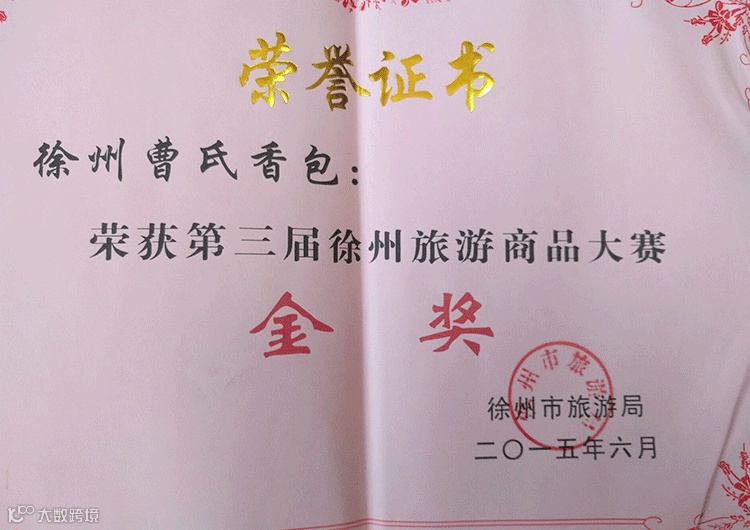 荣誉证书
徐州曹氏香包：
荣获第三届徐州旅游商品大赛
金奖
徐州市旅游局
徐州市旅游局
二〇一五年六月
大数跨境